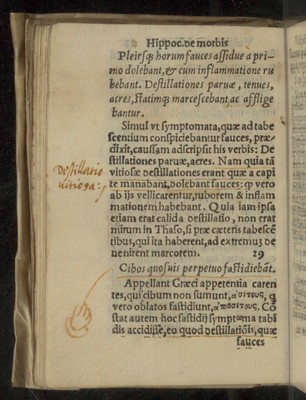 Hippoc. de morbis
Pleirsq; horum fauces assidue a pri-
mo dolebant, & cum inflammatione ru
bebant. Destillationes paruæ, tenues,
acres, statimq; marcescebant, ac afflige
bantur.
Simul vt symptomata, quæ ad tabe
scentium conspiciebantur fauces, præ-
dixit, caussam adscripsit his verbis: De
stillationes paruæ, acres. Nam quia tā
vitiosæ destillationes erant quæ a capi
te manabant, dolebant fauces: q̃ vero
ab ijs vellicarentur, ruborem & inflam
mationem habebant. Quia iam ipsa
etiam erat calida destillatio, non erat
mirum in Thaso, si præ cæteris tabescē
tibus, qui ita haberent, ad extremū de
uenirent marcorem. 19
Cibos quosuis perpetuo fastidiebāt.
Appellant Græci appetentia caren
tes, qui cibum non sumunt, ἀσίτους, q̃
vero oblatos fastidiunt, ἀποσίτους. Cō
stat autem hoc fastidij symptoma tabi
dis accidisse, eo quod destillatiōis, quæ
fauces
Destillatio
uitiosa: